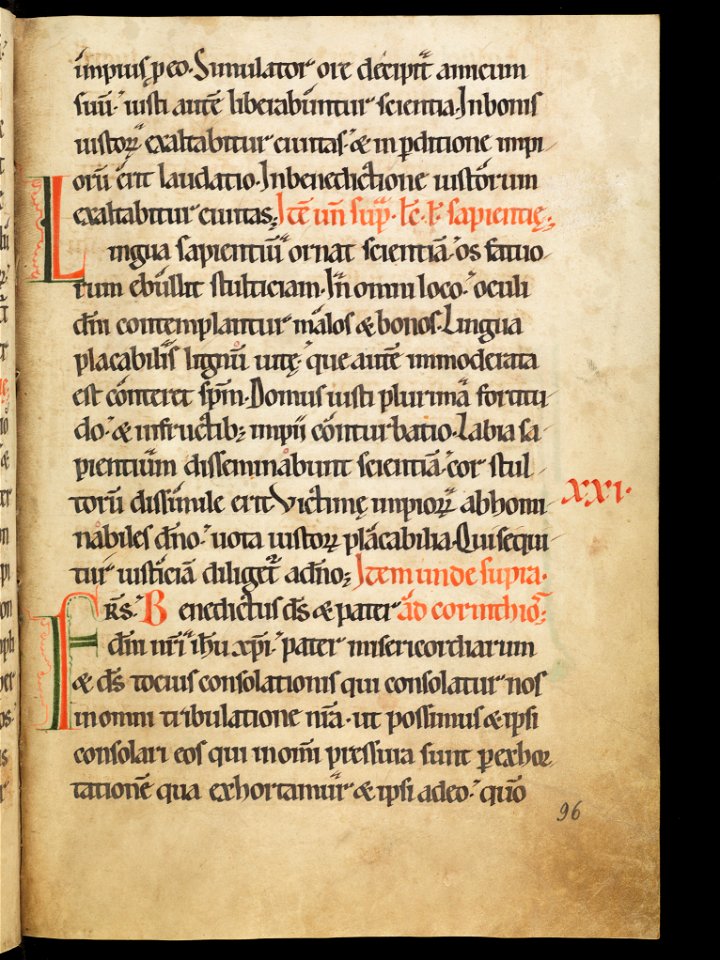 impius ꝑeo. Simulator ore decipit amicum
suū. iusti autē liberabuntur scientia. In bonis
iustoꝝ exaltabitur ciuitas. & in ꝑditione impi
orū erit laudatio. In benedictione iustorum
exaltabitur ciuitas; Itē un̄ sup̄. lc̄. l. sapientię;
Lingua sapientiū ornat scientiā. os fatuo
rum ebullit stulticiam. In omni loco. oculi
dn̄i contemplantur malos & bonos. Lingua
placabilis lignū uitę. que autē immoderata
est conteret sp̄m. Domus iusti plurima fortitu
do. & in fructib; impii conturbatio. Labia sa
pientium disseminabunt scientiā. cor stul
torū dissimile erit. Victimę impioꝝ abhomi
XXI.
nabiles dn̄o. uota iustoꝝ placabilia. Qui sequi
tur iusticiā diliget᷑ a dn̄o; Item unde supra.
FRS̄. Benedictus d̄s & pater ad corinthio ;
dn̄i nr̄i ih̄u xp̄i. pater misericordiarum
& d̄s tocius consolationis qui consolatur nos
in omni tribulatione nr̄a. ut possimus & ipsi
consolari eos qui in om̄i pressura sunt ꝑ exhor
tationē qua exhortamur & ipsi a deo. quō
96